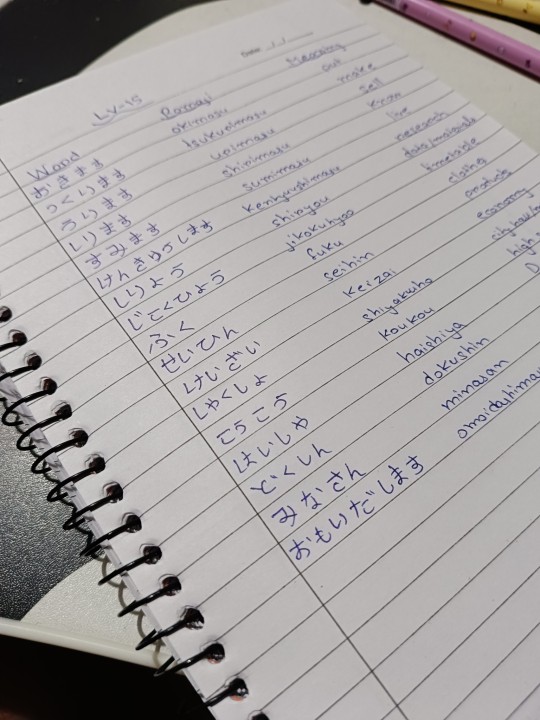 Date: / /
LV-15
Word Romaji Meaning
おきます okimasu
つくります make
うります urimasu sell
しります shirimasu know
すみます sumimasu live
けんきゅうします kenkyushimasu research
しりょう shiryou
じこくひょう jikokuhyoo timetable
ふく fuku clothes
せいひん seihin products
けいざい keizai economy
しやくしょ shiyakusho
こうこう koukou high
はいしゃ haishiya
どくしん dokushin
みなさん minasan
おもいだします omoidashimasu